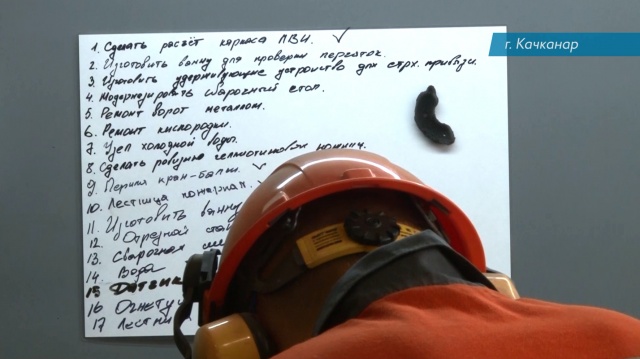 г. Качканар
1. Сделать расчёт каркаса ПВИ. ✓
2. Изготовить ванну для проверки перчаток.
3. Изготовить удерживающие устройство для стрх. привязи.
4. Модернизировать сварочный стол.
5. Ремонт ворот металлом.
6. Ремонт кислородки.
7. Узел холодной воды.
8. Сделать ревизию гильотинових ножниц.
9. Перила кран-балки. ✓
10. Лестница пожарная.
11. Изготовить ванну
12. Отрезной
13. Сварочная
14. Вода
15
16 Огнету
17 Лестни